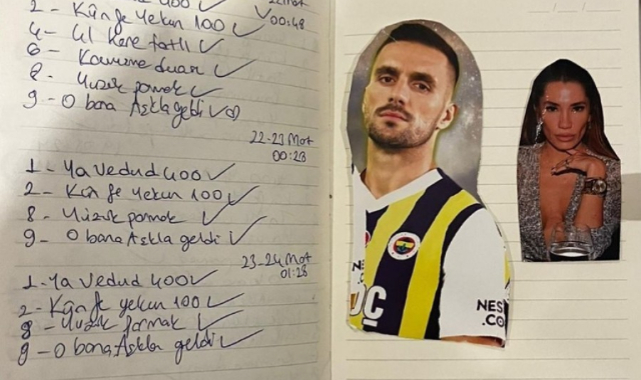 2 - Kûn fe Yekun 100 ✓
00:48
4 - ✓
6 - Kavuşma duası ✓
8 - Yüzük parmak ✓
9 - O bana Aşkla geldi ✓
22-23 Mart
00:23
1 - Ya Vedud 400 ✓
2 - Kûn fe Yekun 100 ✓
8 - Yüzük parmak ✓
9 - O bana Aşkla geldi ✓
23-24 Mart
01:28
1 - Ya Vedud 400 ✓
2 - Kûn fe yekun 100 ✓
8 - Yüzük parmak ✓
9 - O bana Aşkla geldi ✓
NES
.CO